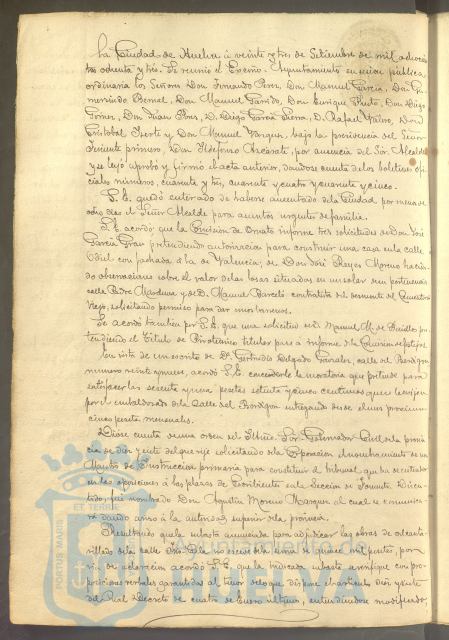 la Ciudad de Huelva á veinte y tres de Setiembre de mil ochocien
tos ochenta y tres. Se reunió el Excmo. Ayuntamiento en sesión pública
ordinaria los Señores Don Fernando Perez, Don Manuel García, Don Gu
mersindo Bernal, Don Manuel Garrido, Don Enrique Don Diego
Gomez, Don Juan Diego García D. Rafael Don
Cristobal y Don Manuel Vazquez, bajo la presidencia del Señor
Teniente primero, Don Ildefonso por ausencia del Sor. Alcalde
y se leyó aprobó y firmó el acta anterior, dándose cuenta de los boletines ofi
ciales números, cuarenta y tres, cuarenta y cuatro y cuarenta y cinco.
S.E. quedó enterado de haberse ausentado de la Ciudad por menos de
ocho días el Señor Alcalde para asuntos urgentes de familia.
S.E. acordó que la Comisión de Ornato informe tres solicitudes de Don José
García Grau pretendiendo autorización para construir una casa en la calle
Odiel con fachada á la de Valencia; de Don José Reyes Moreno hacien
do observaciones sobre el valor de las losas situadas en un solar
calle Padre Marchena y de D. Manuel Barceló contratista del del Cementerio
Viejo, solicitando permiso para dar unos barrenos.
Se acordó también por S.E. que una solicitud de D. Manuel M. de pre
tendiendo el título de titular pase á informe de la Comisión
En vista de un escrito de Dª Gertrudis Delgado calle del
número veinte y nueve, acordó S.E. concederle la moratoria que pretende para
satisfacer las sesenta y una pesetas setenta y cinco centimos que le exigen
por el embaldosado de la Calle del entregando desde el mes próximo
cinco pesetas mensuales.
Dióse cuenta de una orden del Iltmo. Sor. Gobernador Civil de la provin
cia de diez y siete del que rije solicitando de la Corporación el nombramiento de un
Maestro de Instrucción primaria para constituir el tribunal que ha de actuar
en las oposiciones á las plazas de Escribiente de la Sección de Fomento. Discu
tido, fué nombrado Don Agustín Moreno Marquez al cual se comunica
rá dando aviso á la autoridad superior de la provincia.
Resultando que la subasta anunciada para adjudicar las obras de alcanta
rillado de la calle no excede de la suma de quince mil pesetas, por
vía de aclaración acordó S.E. que la indicada subasta se verifique con pro
posiciones verbales garantidas al tenor de lo que dispone el artículo diez y siete
del Real Decreto de cuatro de Enero último, entendiéndose modificado
PORTUS MARIS
ET TERRÆ
Ayuntamiento de
HUELVA